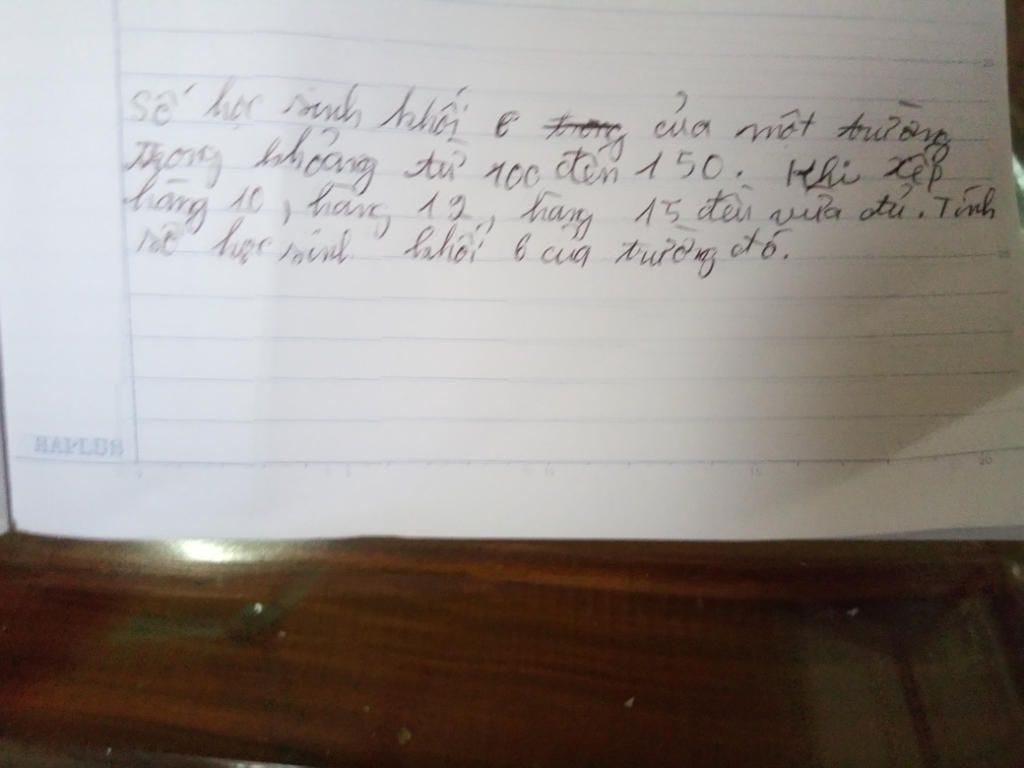 Số học sinh khối 6 trong của một trường
Trong khoảng từ 100 đến 150. Khi xếp
hàng 10, hàng 12, hàng 15 đều vừa đủ. Tính
số học sinh khối 6 của trường đó.
HAPLUS